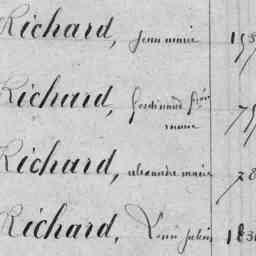 Richard, Jean marie 193
Richard, ferdinand
marie 79
Richard, alexandre marie 78
Richard, Louis julien 183